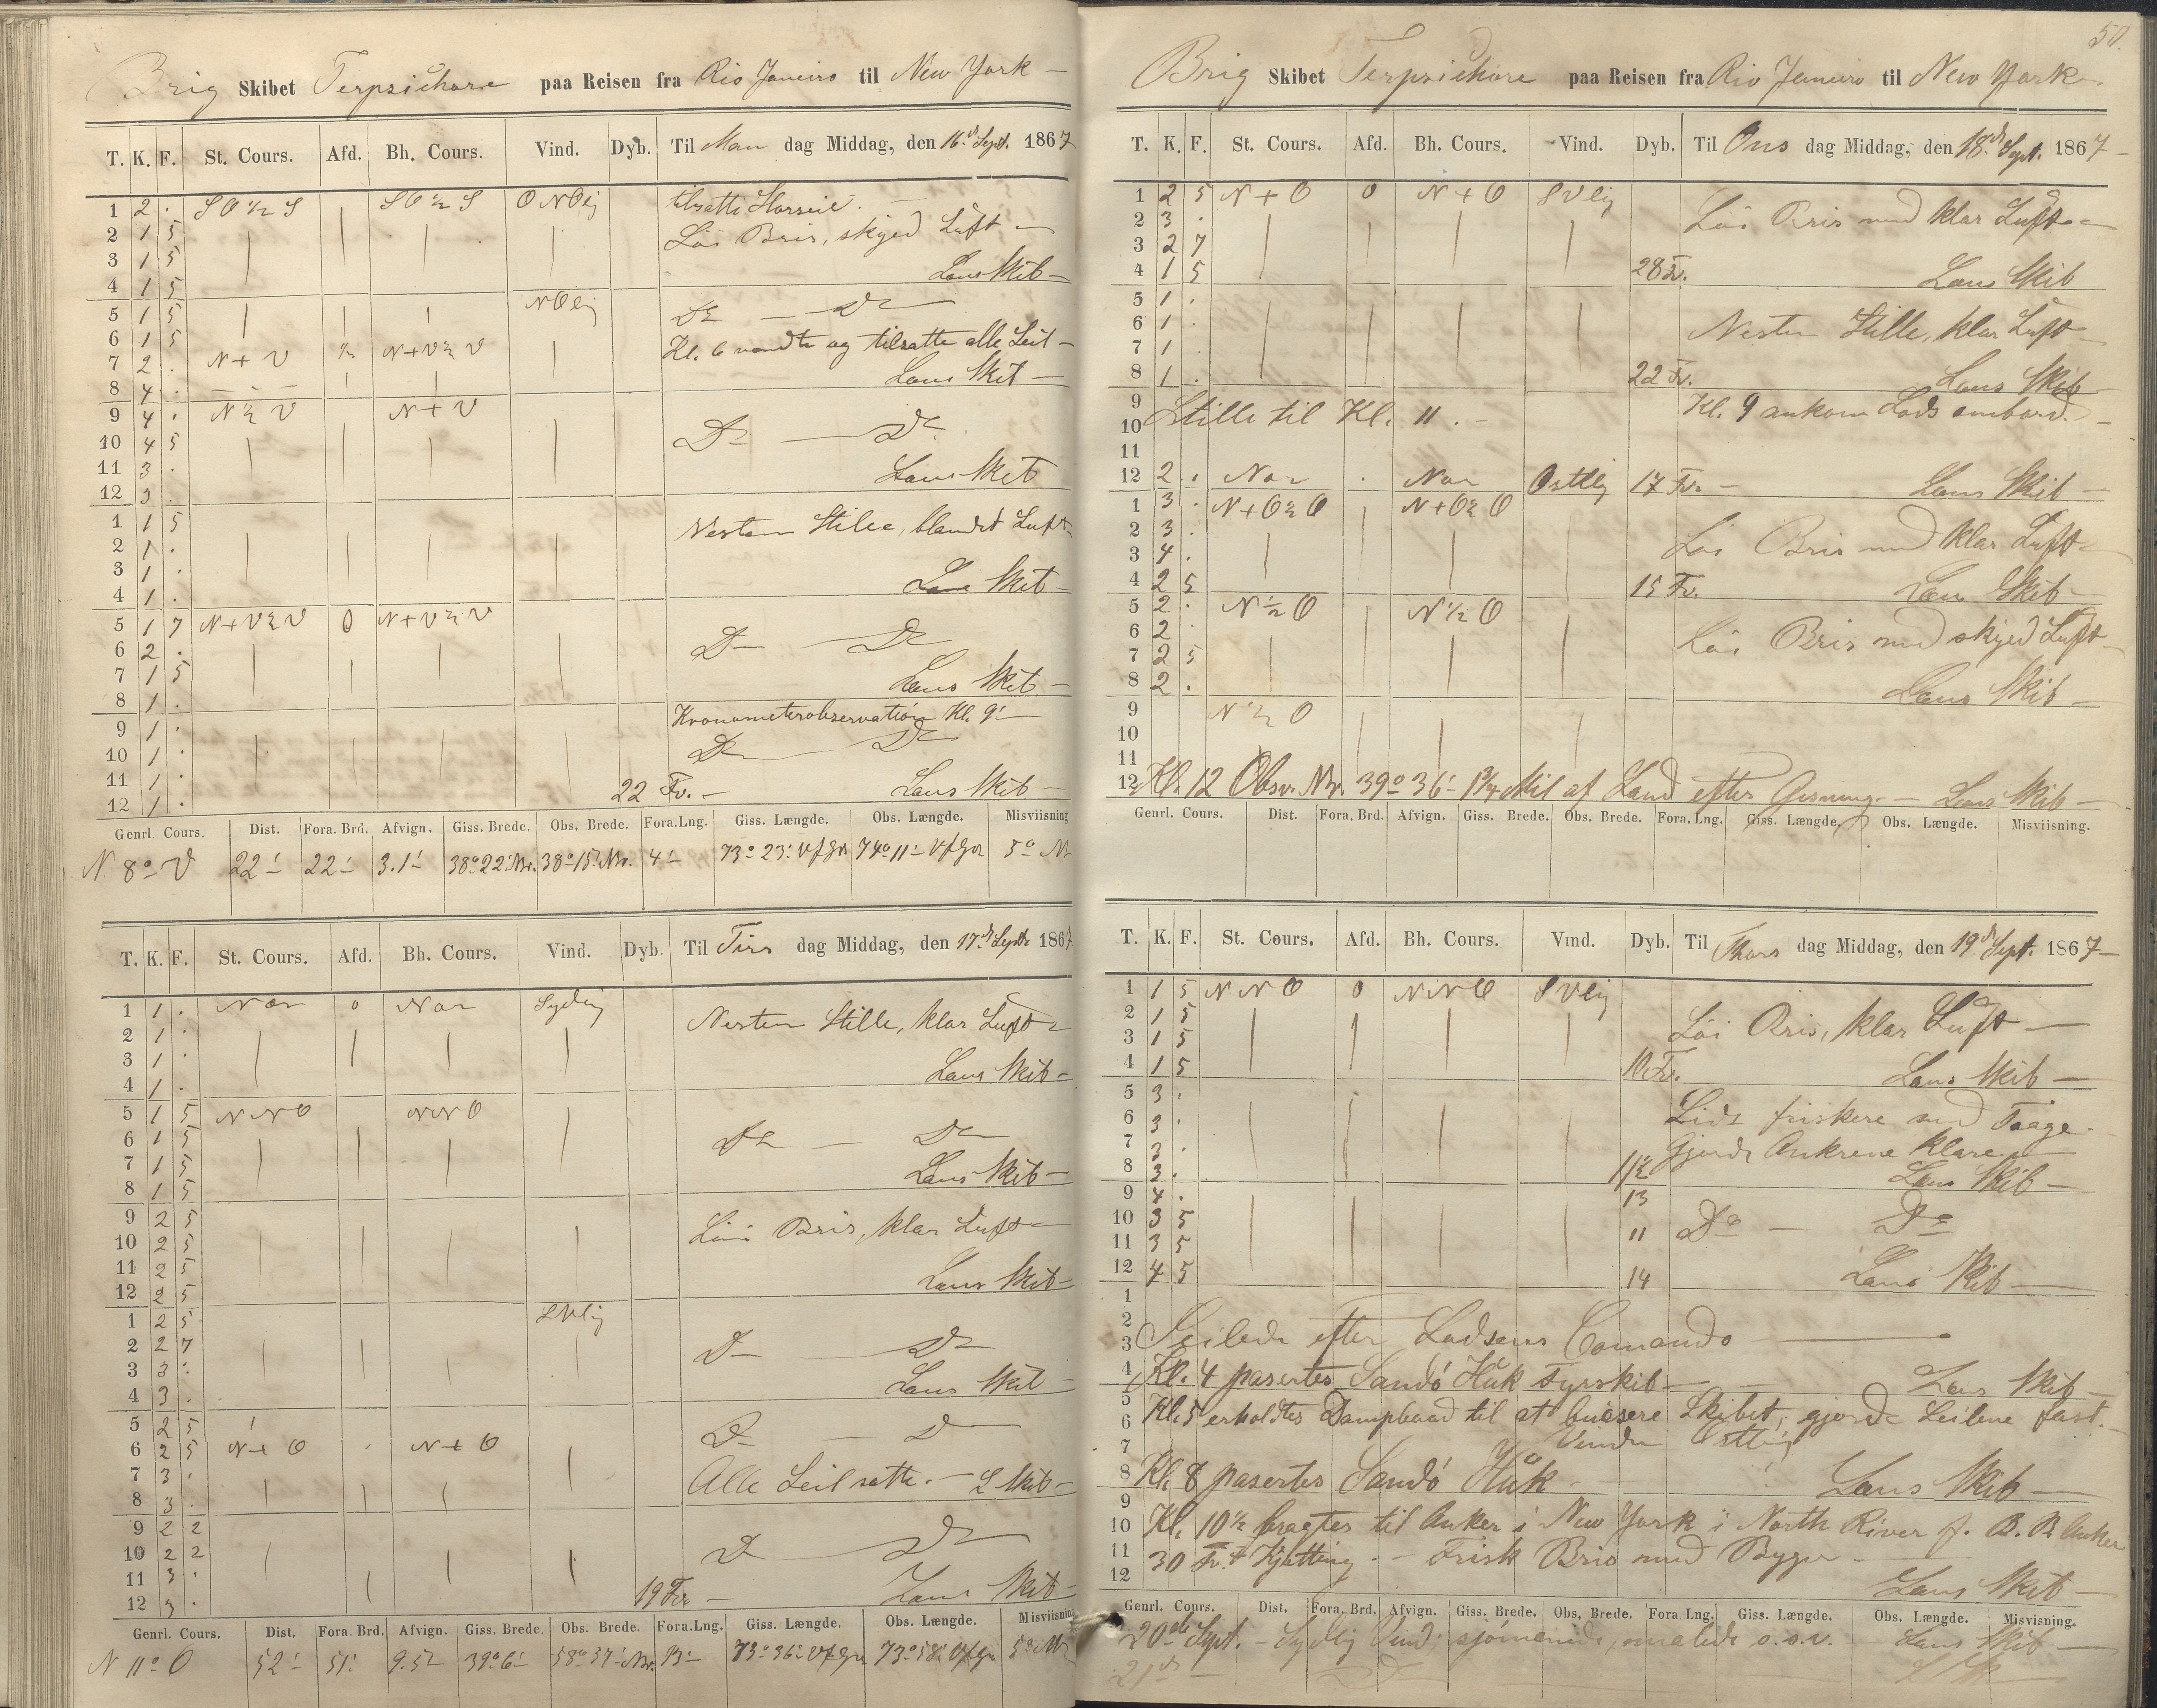 Brig Skibet Terpsichore paa Reisen fra Rio Janeiro til New York —
T. K. F. St. Cours. Afd. Bh. Cours. Vind. Dyb. Til Man dag Middag, den 16.d Sept. 1867
1 2 . SO ½ S SO ½ S ONOlig tilsatte
2 1 5 Löi Bris, skyed Luft —
3 1 5
4 1 5 Læns Skib —
5 1 5 NOlig Do — Do
6 1 5 Kl. 6 vendte og tilsatte alle Seil —
7 2 . N+V ½ N+V½V
8 4 . Læns Skib —
9 4 . N½V N+V
10 4 5 Do — Do
11 3 . Læns Skib
12 3 .
1 1 5 Nesten Stille, blandet Luft
2 1 .
3 1 .
4 1 . Læns Skib —
5 1 7 N+V½V 0 N+V½V
6 2 . Do — Do
7 1 5
8 1 . Læns Skib —
9 1 . Kronometerobservation Kl. 9 —
10 1 . Do — Do
11 1 .
12 1 . 22 Fv. — Læns Skib —
Genrl. Cours. Dist. Fora. Brd. Afvign. Giss. Brede. Obs. Brede. Fora.Lng. Giss. Længde. Obs. Længde. Misviisning
N 8° V 22' 22' 3.1' 38° 22' Nr. 38° 15' Nr. 4' 73° 23' 74° 11' 5°
T. K. F. St. Cours. Afd. Bh. Cours. Vind. Dyb. Til Tirs dag Middag, den 17.d Septr 1867
1 1 . Nor 0 Nor Sydlig
2 1 . Nesten Stille, klar Luft
3 1 .
4 1 . Læns Skib —
5 1 5 NNO NNO
6 1 5 Do — Do
7 1 5
8 1 5 Læns Skib —
9 2 5 Löi Bris, klar Luft —
10 2 5
11 2 5
12 2 5 Læns Skib —
1 2 5 SVlig
2 2 7 Do — Do
3 3 .
4 3 . Læns Skib —
5 2 5
6 2 5 N+O . N+O Do — Do
7 3 . Alle Seil satte. — L Skib —
8 3 .
9 2 2
10 2 2 Do Do
11 3 .
12 3 . 19 Fv — Læns Skib —
Genrl. Cours. Dist. Fora. Brd. Afvign. Giss. Brede. Obs. Brede. Fora.Lng. Giss. Længde. Obs. Længde. Misviisning
N 11° O 52' 51' 9.5 39° 6' 58° 57' Nr. 13' 73° 36' 73° 58' 5°
50.
Brig Skibet Terpsichore paa Reisen fra Rio Janeiro til New York —
T. K. F. St. Cours. Afd. Bh. Cours. Vind. Dyb. Til Ons dag Middag, den 18.d Sept. 1867 —
1 2 5 N+O 0 N+O SVlig
2 3 . Löi Bris med klar Luft —
3 2 7
4 1 5 28 Fv. Læns Skib
5 1 .
6 1 . Nesten Stille, klar Luft —
7 1 .
8 1 . 22 Fv. Læns Skib
9 Kl. 9 ankom Lods ombord. —
10 Stille til Kl. 11. —
11
12 2 . Nor . Nor Ostlig 17 Fv. — Læns Skib —
1 3 . N+O½O N+O½O
2 3 .
3 4 . Löi Bris med klar Luft —
4 2 5 15 Fv. Læns Skib —
5 2 . N½O N½O
6 2 . Löi Bris med skyed Luft —
7 2 5
8 2 . Læns Skib —
9 N½O
10
11
12 Kl. 12 Obsv. Nr. 39° 36' 1¾ Mil af Land efter Gisning. — Læns Skib —
Genrl. Cours. Dist. Fora. Brd. Afvign. Giss. Brede. Obs. Brede. Fora. Lng. Giss. Længde. Obs. Længde. Misviisning.
T. K. F. St. Cours. Afd. Bh. Cours. Vind. Dyb. Til Thors dag Middag, den 19.d Sept. 1867 —
1 1 5 NNO 0 NNO SVlig
2 1 5 Löi Bris, klar Luft —
3 1 5
4 1 5 10 Fv. Læns Skib —
5 3 .
6 3 . Lidt friskere med Taage.
7 3 . Gjorde Ankrene klare —
8 3 . 11½ Læns Skib —
9 4 . 13
10 3 5 11 Do — Do
11 3 5
12 4 5 14 Læns Skib —
1
2
3 Seilede efter Lodsens Comando —
4 Kl. 4 pasertes Sandö Huk Fyrskib — Læns Skib —
5
6 Kl. 5 erholdtes Dampbaad til at bugsere Skibet, gjorde Seilene fast. —
7 Vinden Ostlig
8 Kl. 8 pasertes Sandö Huk — Læns Skib —
9
10 Kl. 10½ bragtes til Anker i New York i North River f. B. B. Anker
11 30 Fv. Kjetting. — Frisk Bris med Byger —
12 Læns Skib —
Genrl. Cours. Dist. Fora. Brd. Afvign. Giss. Brede. Obs. Brede. Fora Lng. Giss. Længde. Obs. Længde. Misvisning.
20de Sept. — Sydlig Vind, malede o.s.v. — Læns Skib —
21de — Do — L Sk —